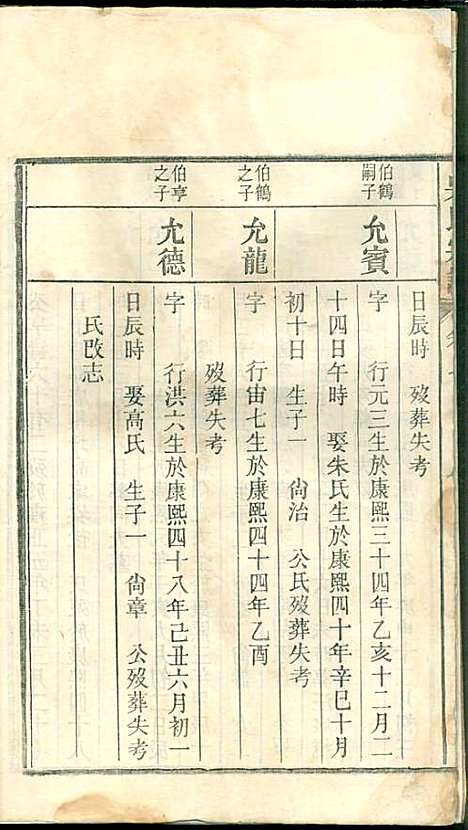 日辰時　歿葬失考
伯鶴
嗣子
允賓
字　行元三生於康熙三十四年乙亥十二月二
十四日午時　娶朱氏生於康熙四十年辛巳十月
初十日　生子一　尙治　公氏歿葬失考
伯鶴
之子
允龍
字　行宙七生於康熙四十四年乙酉
歿葬失考
伯亭
之子
允德
字　行洪六生於康熙四十八年己丑六月初一
日辰時　娶高氏　生子一　尙章　公歿葬失考
氏改志